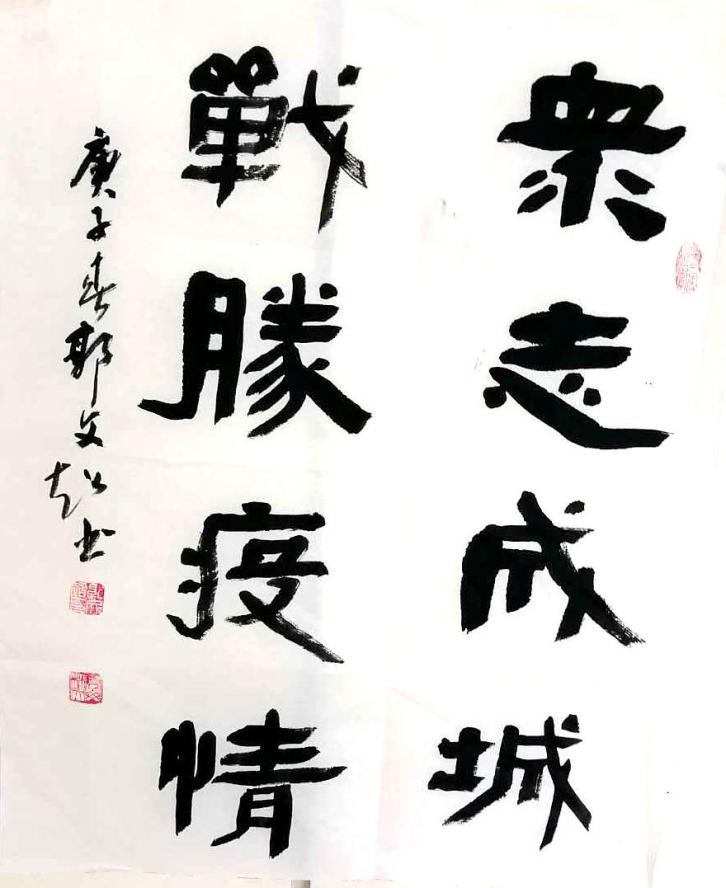 眾志成城
戰勝疫情
庚子春郭文超书